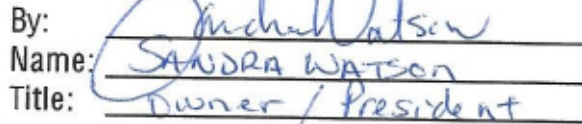 By: Watson
Name: SANDRA WATSON
Title: Owner / President